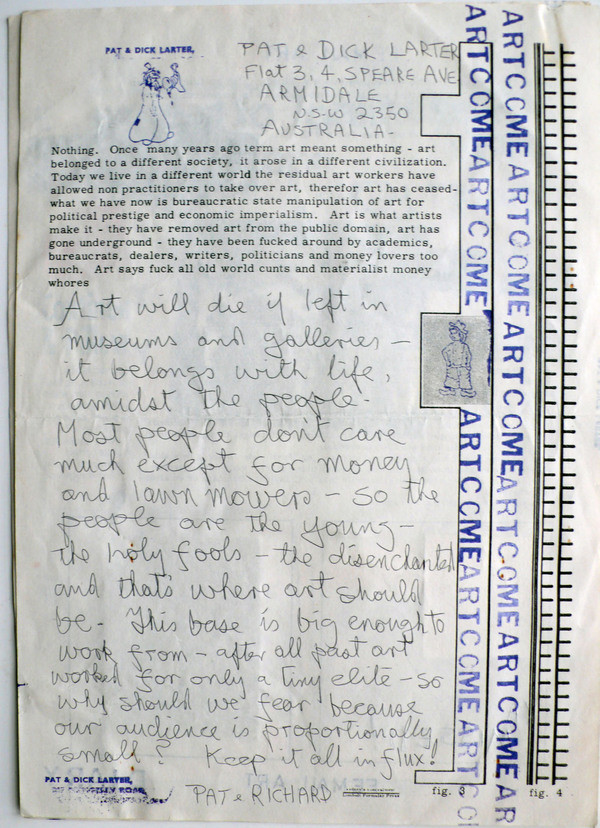 PAT & DICK LARTER,
PAT & DICK LARTER
Flat 3, 4, SPEARE AVE
ARMIDALE
N.S.W 2350
AUSTRALIA-
Nothing. Once many years ago term art meant something - art
belonged to a different society, it arose in a different civilization.
Today we live in a different world the residual art workers have
allowed non practitioners to take over art, therefor art has ceased-
what we have now is bureaucratic state manipulation of art for
political prestige and economic imperialism. Art is what artists
make it - they have removed art from the public domain, art has
gone underground - they have been fucked around by academics,
bureaucrats, dealers, writers, politicians and money lovers too
much. Art says fuck all old world cunts and materialist money
whores
Art will die if left in
museums and galleries -
it belongs with life,
amidst the people.
Most people don't care
much except for money
and lawn mowers - so the
people are the young -
the holy fools - the disenchanted
and that's where art should
be - This base is big enough to
work from - after all past art
worked for only a tiny elite - so
why should we fear because
our audience is proportionally
small? Keep it all in flux!
PAT & DICK LARTER,
ROAD,
PAT & RICHARD
fig. 3
fig. 4
ARTCOMEARTCOMEARTCOMEARTCOMEARTCO
ARTCOMEARTCOMEARTCOMEARTCOMEARTCOMEAR